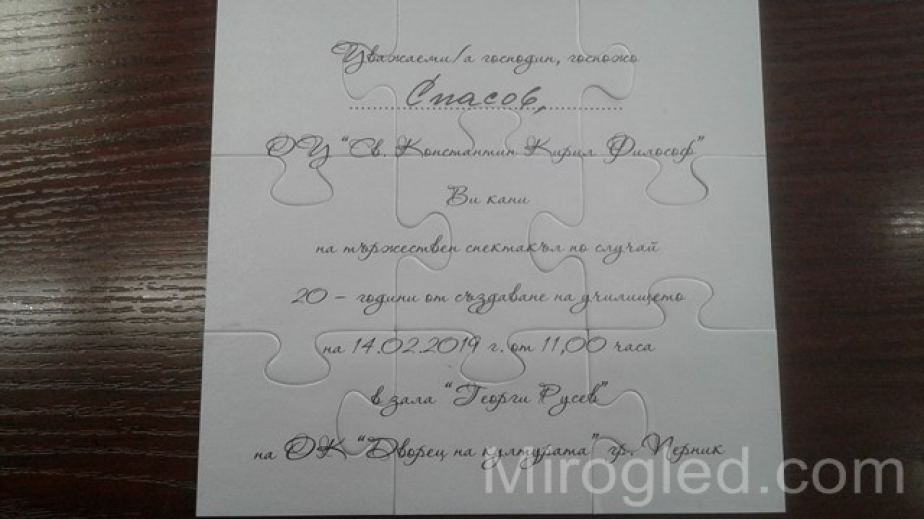 Уважаеми/а господин, госпожо
Спасов,
ОУ "Св. Константин Кирил Философ"
Ви кани
на тържествен спектакъл по случай
20 - години от създаване на училището
на 14.02.2019 г. от 11,00 часа
в зала "Георги Русев"
на ОК "Дворец на културата" гр. Перник
Mirogled.com